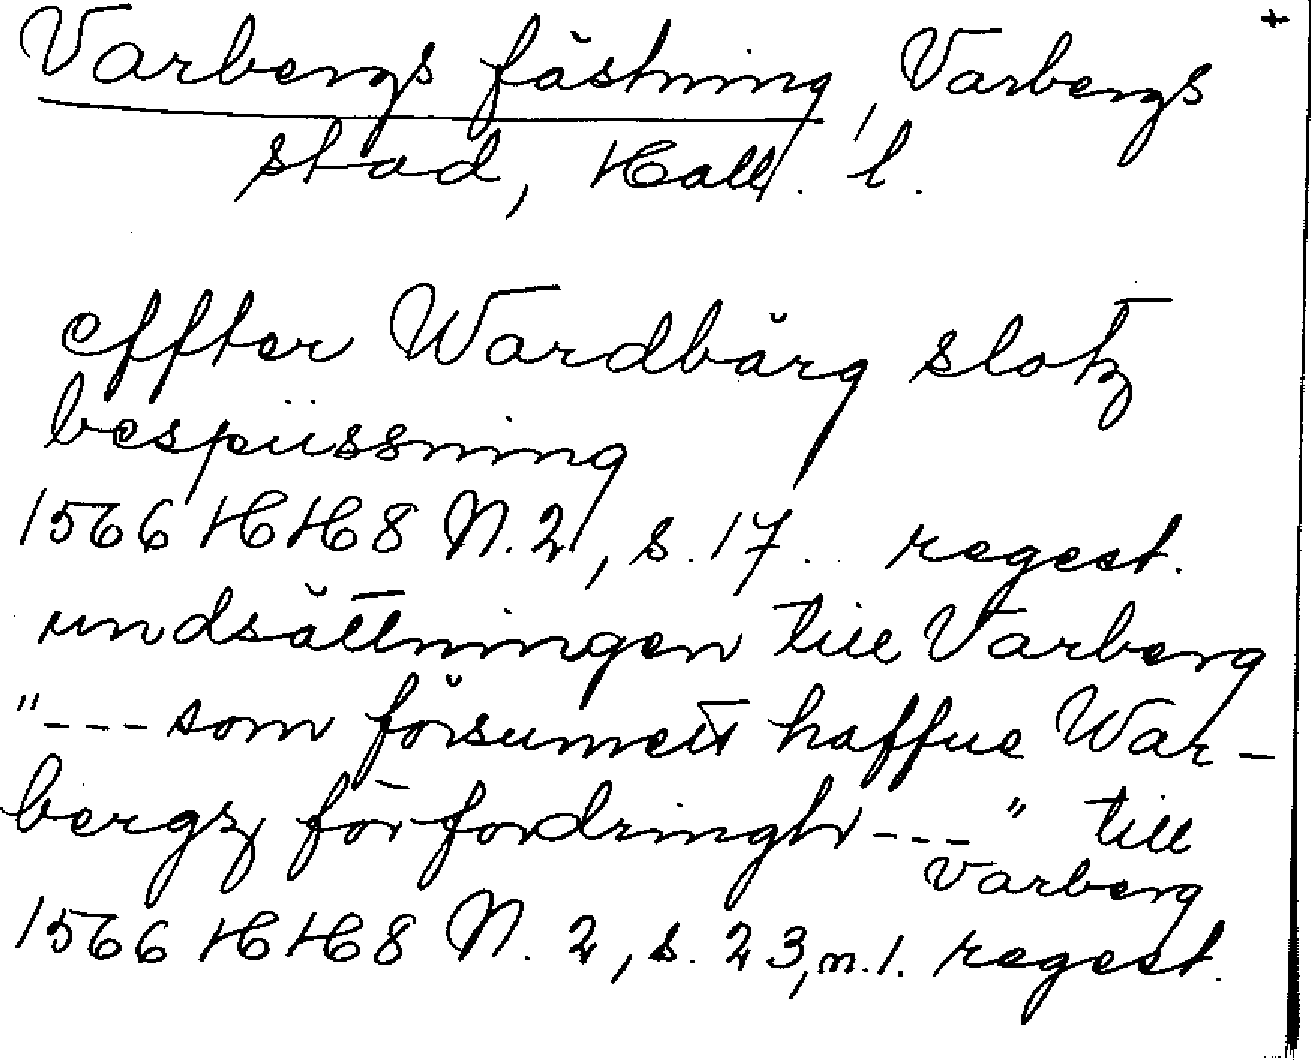 Varbergs fästning, Varbergs
stad, Hall. l.
effter Wardbärg slotz
bespüssning
1566 HH 8 N. 2, s. 17. regest.
undsättningen till Varberg
"--- som försumett haffue War-
bergz förfordringh ---" till
Varberg
1566 HH 8 N. 2, s. 23, n. 1. regest.